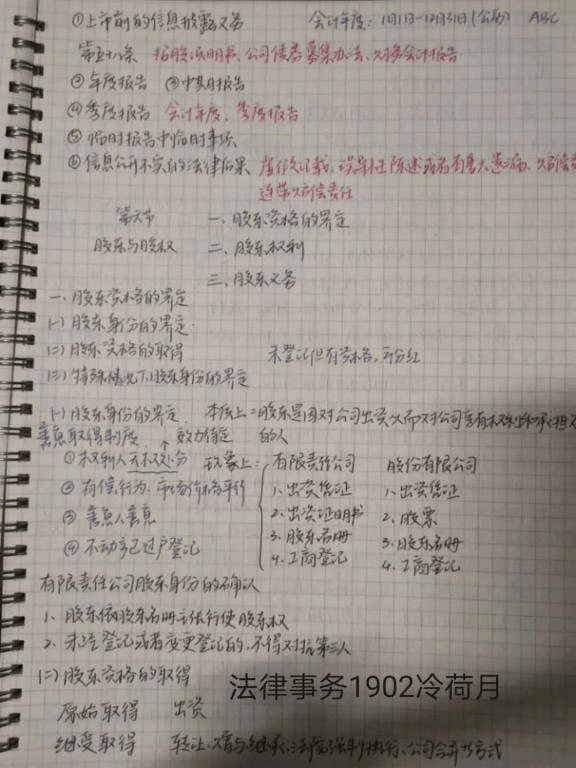 ①上市前的信息披露义务 会计年度：1月1日-12月31日(公历) ABC
第五十八条 招股说明书、公司债券募集办法、财务会计报告
②年度报告 ③中期报告
④季度报告 会计年度、季度报告
⑤临时报告中临时事项
⑥信息公开不实的法律后果 虚假记载、误导性陈述或者有重大遗漏、
连带赔偿责任
第六节 一、股东资格的界定
股东与股权 二、股东权利
三、股东义务
一、股东资格的界定
(一)股东身份的界定.
(二)股东资格的取得 未登记但有资格，可分红
(三)特殊情况下股东身份的界定
(一)股东身份的界定. 本质上=股东是因对公司出资从而对公司享有权利和承担义
善意取得制度、效力待定 的人
①权利人无权处分 现象上： 有限责任公司 股份有限公司
②有偿行为，市场价格平行 1.出资凭证 1.出资凭证
③善意人善意 2.出资证明书 2.股票
④不动产已过户登记 3.股东名册 3.股东名册
4.工商登记 4.工商登记
有限责任公司股东身份的确认
1、股东依股东名册主张行使股东权
2、未经登记或者变更登记的，不得对抗第三人
(二)股东资格的取得 法律事务1902冷荷月
原始取得 出资
继受取得 转让、赠与继承、法院强制执行、公司合并方式